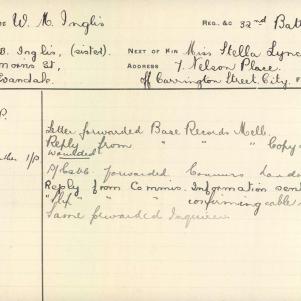 W. M. Inglis REG. &c 32nd Batt
B. Inglis, (sister). NEXT OF KIN Miss Stella Lync
St, ADDRESS 7. Nelson Place.
off Carrington Street. City.
P.
Letter forwarded Base Records Melb.
Reply from " " " Copy
Wounded
forwarded
Reply from Commis. Information sent
" " " confirming cable
Same forwarded Inquirer